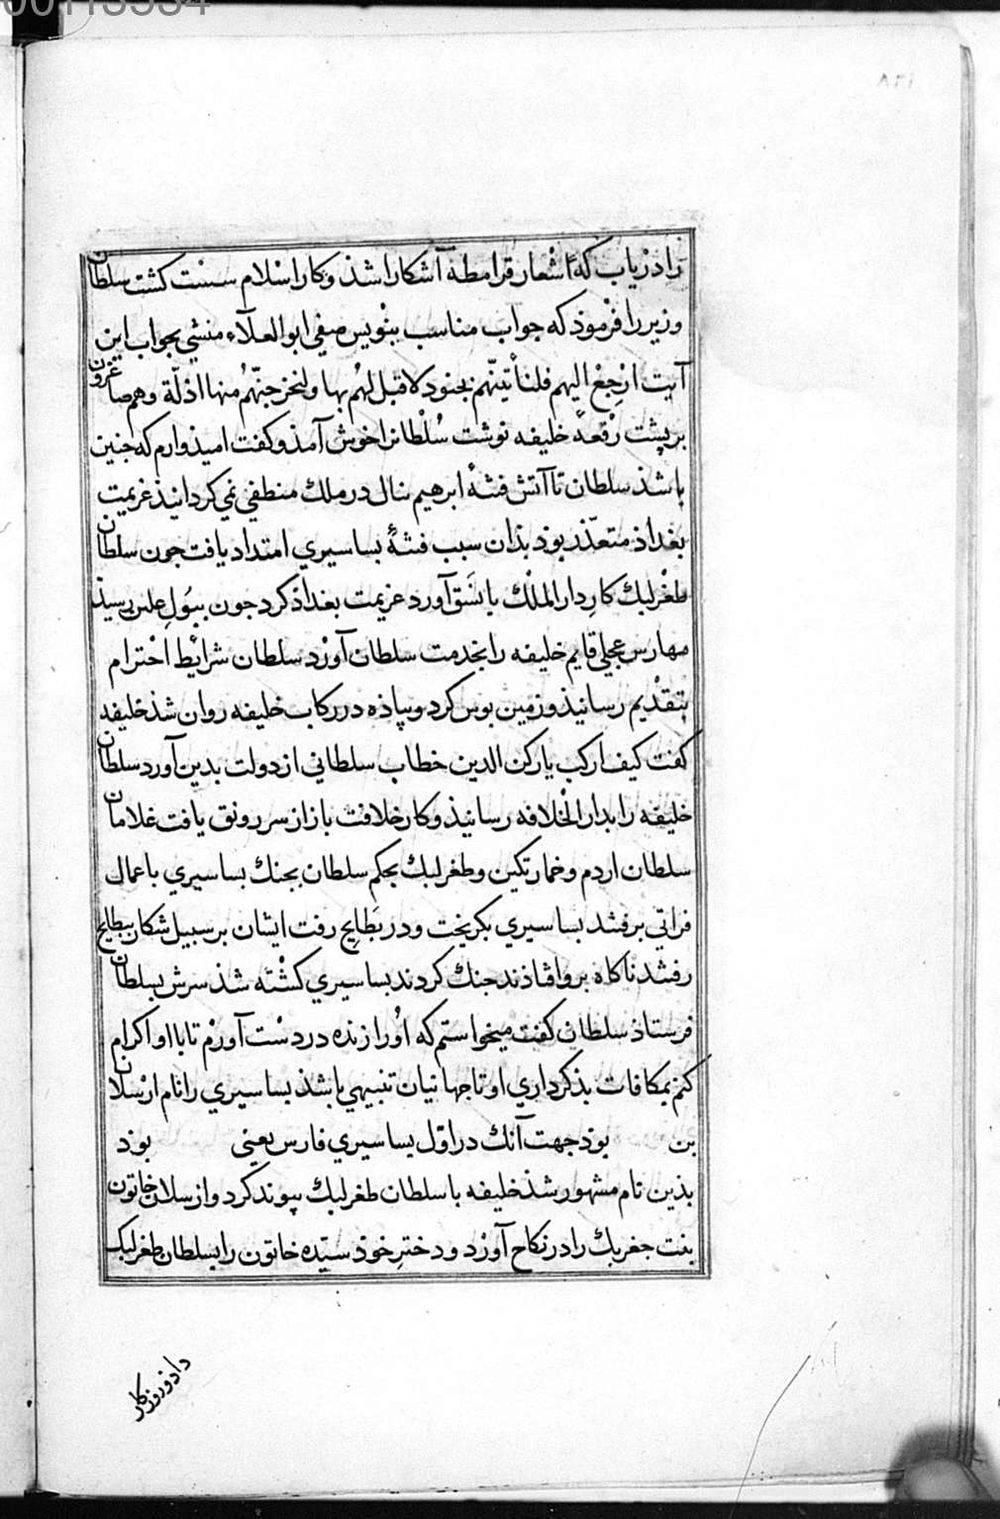 00113334
١٦٨
را دریاب که اشعار قرامطه آشکارا شذ و کار اسلام سست کشت سلطان
وزیر را فرموذ که جواب مناسب بنویس صفی ابوالعلآء منشی بجواب این
آیت ارجع الیهم فلنأتینّهم بجنود لا قبل لهم بها ولنخرجنّهم منها اذلّة وهم صاغرون
بر پشت رقعهٔ خلیفه نوشت سلطانرا خوش آمذ و کفت امیذوارم که جنین
باشذ سلطان تا آتش فتنهٔ ابرهیم ینال در ملک منطفی نمی کردانیذ عزیمت
بغداذ متعذّر بوذ بذان سبب فتنهٔ بساسیری امتداد یافت جون سلطان
طغرلبک کار دار الملک با نسق آورد عزیمت بغداذ کرد جون رسیذ
مهارس عجلی قایم خلیفه را بخدمت سلطان آورد سلطان شرائط احترام
بتقدیم رسانیذ و زمین بوس کرد و پیاذه در رکاب خلیفه روان شذ خلیفه
کفت کیف ارکب یا رکن الدین خطاب سلطانی از دولت بدین آورد سلطان
خلیفه را بدار الخلافه رسانیذ و کار خلافت باز از سر رونق یافت غلامان
سلطان اردم و خمارتکین و طغرلبک بحکم سلطان بجنک بساسیری باعمال
فراتی برفتند بساسیری بکریخت و در بطایح رفت ایشان بر سبیل شکار ببطایح
رفتند ناکاه برو افتاذند جنک کردند بساسیری کشته شذ سرش بسلطان
فرستاذ سلطان کفت میخواستم که اورا زنده در دست آورم تا با او اکرام
کنم بمکافات بذکرداری او تا جهانیان تنبیهی باشذ بساسیری را نام ارسلان
بن بوذ جهت آنک در اوّل بساسیری فارس یعنی بوذ
بذین نام مشهور شذ خلیفه با سلطان طغرلبک پیوند کرد و ارسلان خاتون
بنت جغربک را در نکاح آورد و دختر خوذ سیّده خاتون را بسلطان طغرلبک
داذ و روزکار